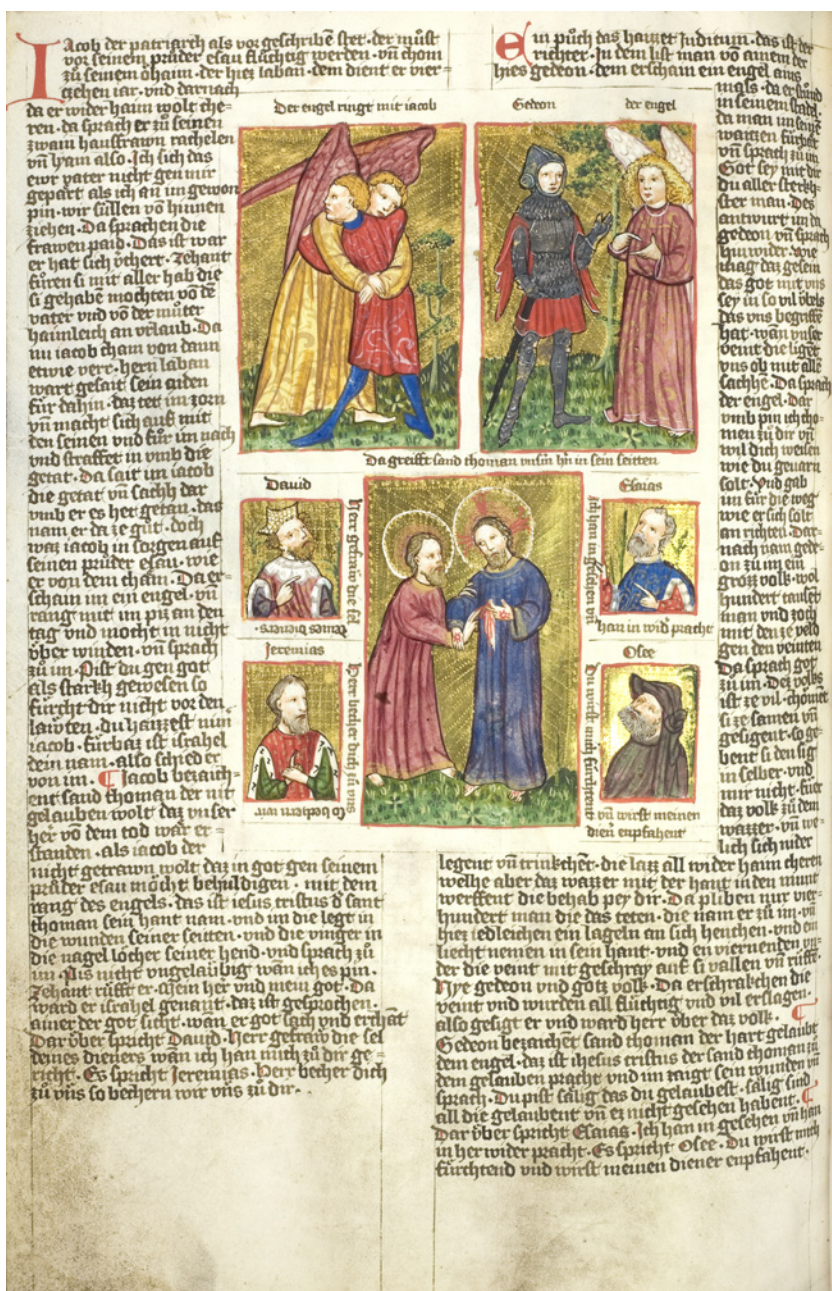 Jacob der patriarch als vor geschribē stet · der můst
vor seinem průder esau flúchtig werden · vn̄ chom
zů seinem ȯhaim · der hiez laban · dem dient er vier-
tzehen iar · vnd darnach
da er wider haim wolt che-
ren · da sprach er zů seinen
zwain hausfrawn rachelen
vn̄ lyam also · Ich sich das
ewr vater nicht gen mir
gepart als ich an im gewon
pin · wir súllen vō hinnen
ziehen · Da sprachen die
frawen paid · Das ist war
er hat sich v̇chert · Zehant
fůren si mit aller hab die
si gehabē mochten vō dē
vater vnd von der můter
haimleich an vrlaub · Da
nu iacob cham von dann
etwie verr · hern laban
wart gesait sein aiden
fůr dahin · daz tet im zorn
vn̄ macht sich auf mit
den seinen vnd fůr im nach
vnd straffet in vmb die
getat · Da sait im iacob
die getat vn̄ sachh dar
vmb er es het getan · das
nam er da ze gůt · doch
waz iacob in sorgen auf
seinen průder esau · wie
er von dem cham · Da er-
scham im ein engel · vn̄
rang mit im piz an den
tag vnd mocht in nicht
v̇ber winden · vn̄ sprach
zů im · Pist du gen got
als starkh gewesen so
fúrcht dir nicht vor den
láwten · du haizzest nun
iacob · fúrbaz ist israhel
dein nam · also schied er
von im · ¶ Jacob bezaich-
ent sand thoman der nit
gelauben wolt daz vnser
her vō dem tod war er-
standen · als iacob der
nicht getrawn wolt daz in got gen seinem
průder esau mȯcht behuldigen · mit dem
rang des engels · das ist iesus cristus d̓ sant
thoman sein hant nam · vnd im die legt in
die wunden seiner seitten · vnd die vinger in
die nagel lȯcher seiner hend · vnd sprach zů
im · Pis nicht vngeláubig wān ich es pin ·
Zehant růfft er · Mein her vnd mein got · Da
ward er israhel genant · daz ist gesprochen ·
ainer der got sicht · wan er got sach vnd erchāt
Dar v̇ber spricht Dauid · Herr getraw die sel
deines dieners wan ich han mich zů dir ge-
richt · Es spricht Jeremias · Herr becher dich
zů vns so bechern wir vns zů dir · ·
Ein půch das haizzet Judicum · das ist der
richter · In dem list man vō ainem der
hies gedeon · dem erscham ein engel ains
mals · da er stůnd
in seinem stadel
da man im seinē
waitzen fúrbet
vn̄ sprach zů im
Got sey mit dir
du aller sterkh-
ster man · Des
antwurt im da
gedeon vn̄ sprach
hin wider · wie
mag daz gesein
das got mit vns
sey in so vil v̇bels
das vns begriffē
hat · wān vnser
veint die ligēt
vns ob mit allē
sachhē · Da sprach
der engel · Dar
vmb pin ich cho-
men zů dir vn̄
wil dich weisen
wie du gevarn
solt · Vnd gab
im fúr die weg
wie er sich solt
an richten · Dar-
nach nam gede-
on zů im ein
grozz volk · wol
hundert tausēt
man vnd zoch
mit den ze veld
gen den veinten
Da sprach got
zů im · Dez volks
ist ze vil · chȯmēt
si ze samen vn̄
gesigent · so ge-
bent si den sig
in selber · vnd
mir nicht · fúer
daz volk zů dem
wazzer · vn̄ we-
lich sich nider
legent vn̄ trinkchēt · die lazz all wider haim cheren
welhe aber daz wazzer mit der hant in den munt
werffent die behab pey dir · Da pliben nur vier-
hundert man die das teten · die nam er zů im · vn̄
hiez iedleichen ein lageln an sich henchen · vnd ein
liecht nemen in sein hant · vnd en viernenden vn-
der die veint mit geschray auf si vallen vn̄ růffē ·
Hye gedeon vnd gotz volk · Da erschrakchen die
veint vnd wurden all flúchtig vnd vil erslagen ·
also gesigt er vnd ward herr v̇ber daz volk · ¶
Gedeon bezaichēt sand thoman der hart gelaubt
dem engel · daz ist ihesus cristus der sand thoman zů
dem gelauben pracht vnd im zaigt sein wunden vn̄
sprach · Du pist sálig das du gelaubest · sálig sind
all die gelaubent vn̄ ez nicht gesehen habent · ¶
Dar v̇ber spricht Esaias · Ich han in gesehen vn̄ han
in her wider pracht · Es spricht Osee · Du wirst mich
fúrchtend vnd wirst meinen diener enpfahent ·
Der engel ringt mit iacob
Gedeon
der engel
Da greifft sand thoman vnsm̄ hn̄ in sein seitten
Dauid
Herr getraw die sel
deines dieners ·
Esaias
Ich han in gesehen vn̄
han in wid̓ pracht
Jeremias
Herr becher dich zů vns
so bechern wir
Osee
Du wirst mich fúrchtent
vn̄ wirst meinen
dien̓ enpfahent